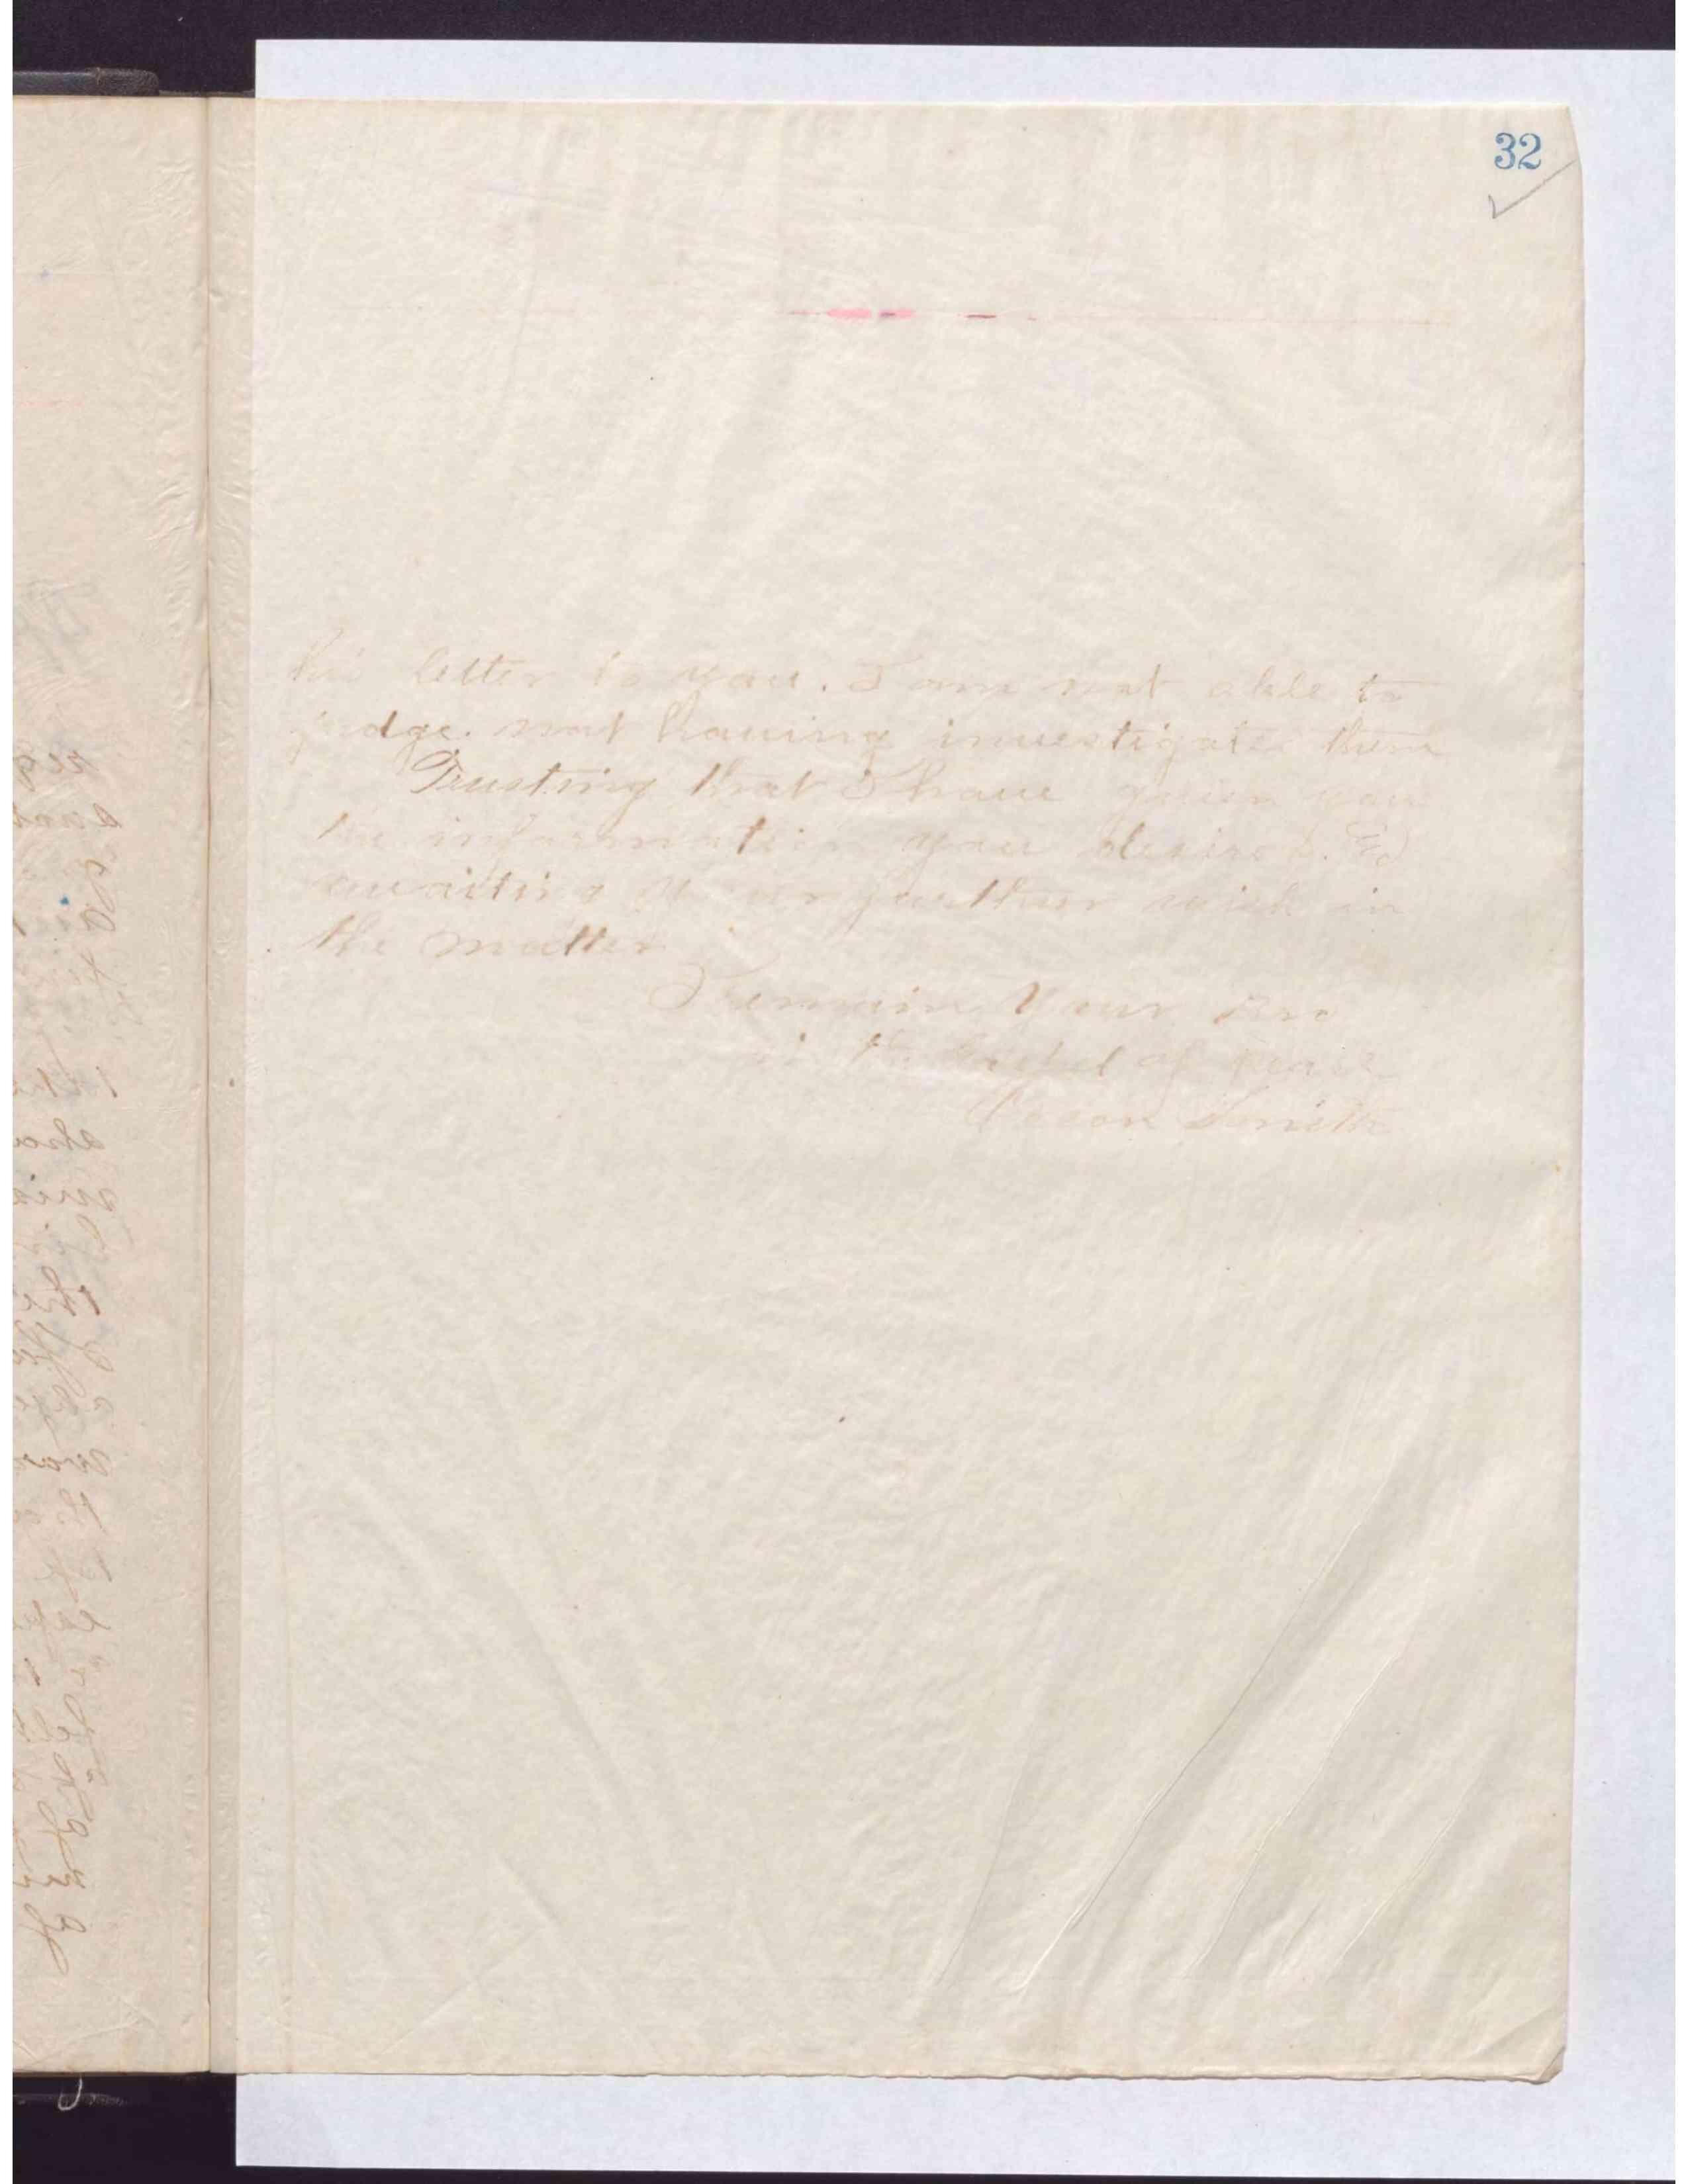 32
his letter to you. I am not able to
judge. not having investigated them
Trusting that I have given you
the information you desired. &
awaiting your further wish in
the matter
I remain Your Bro
in the Gospel of Peace
Smith